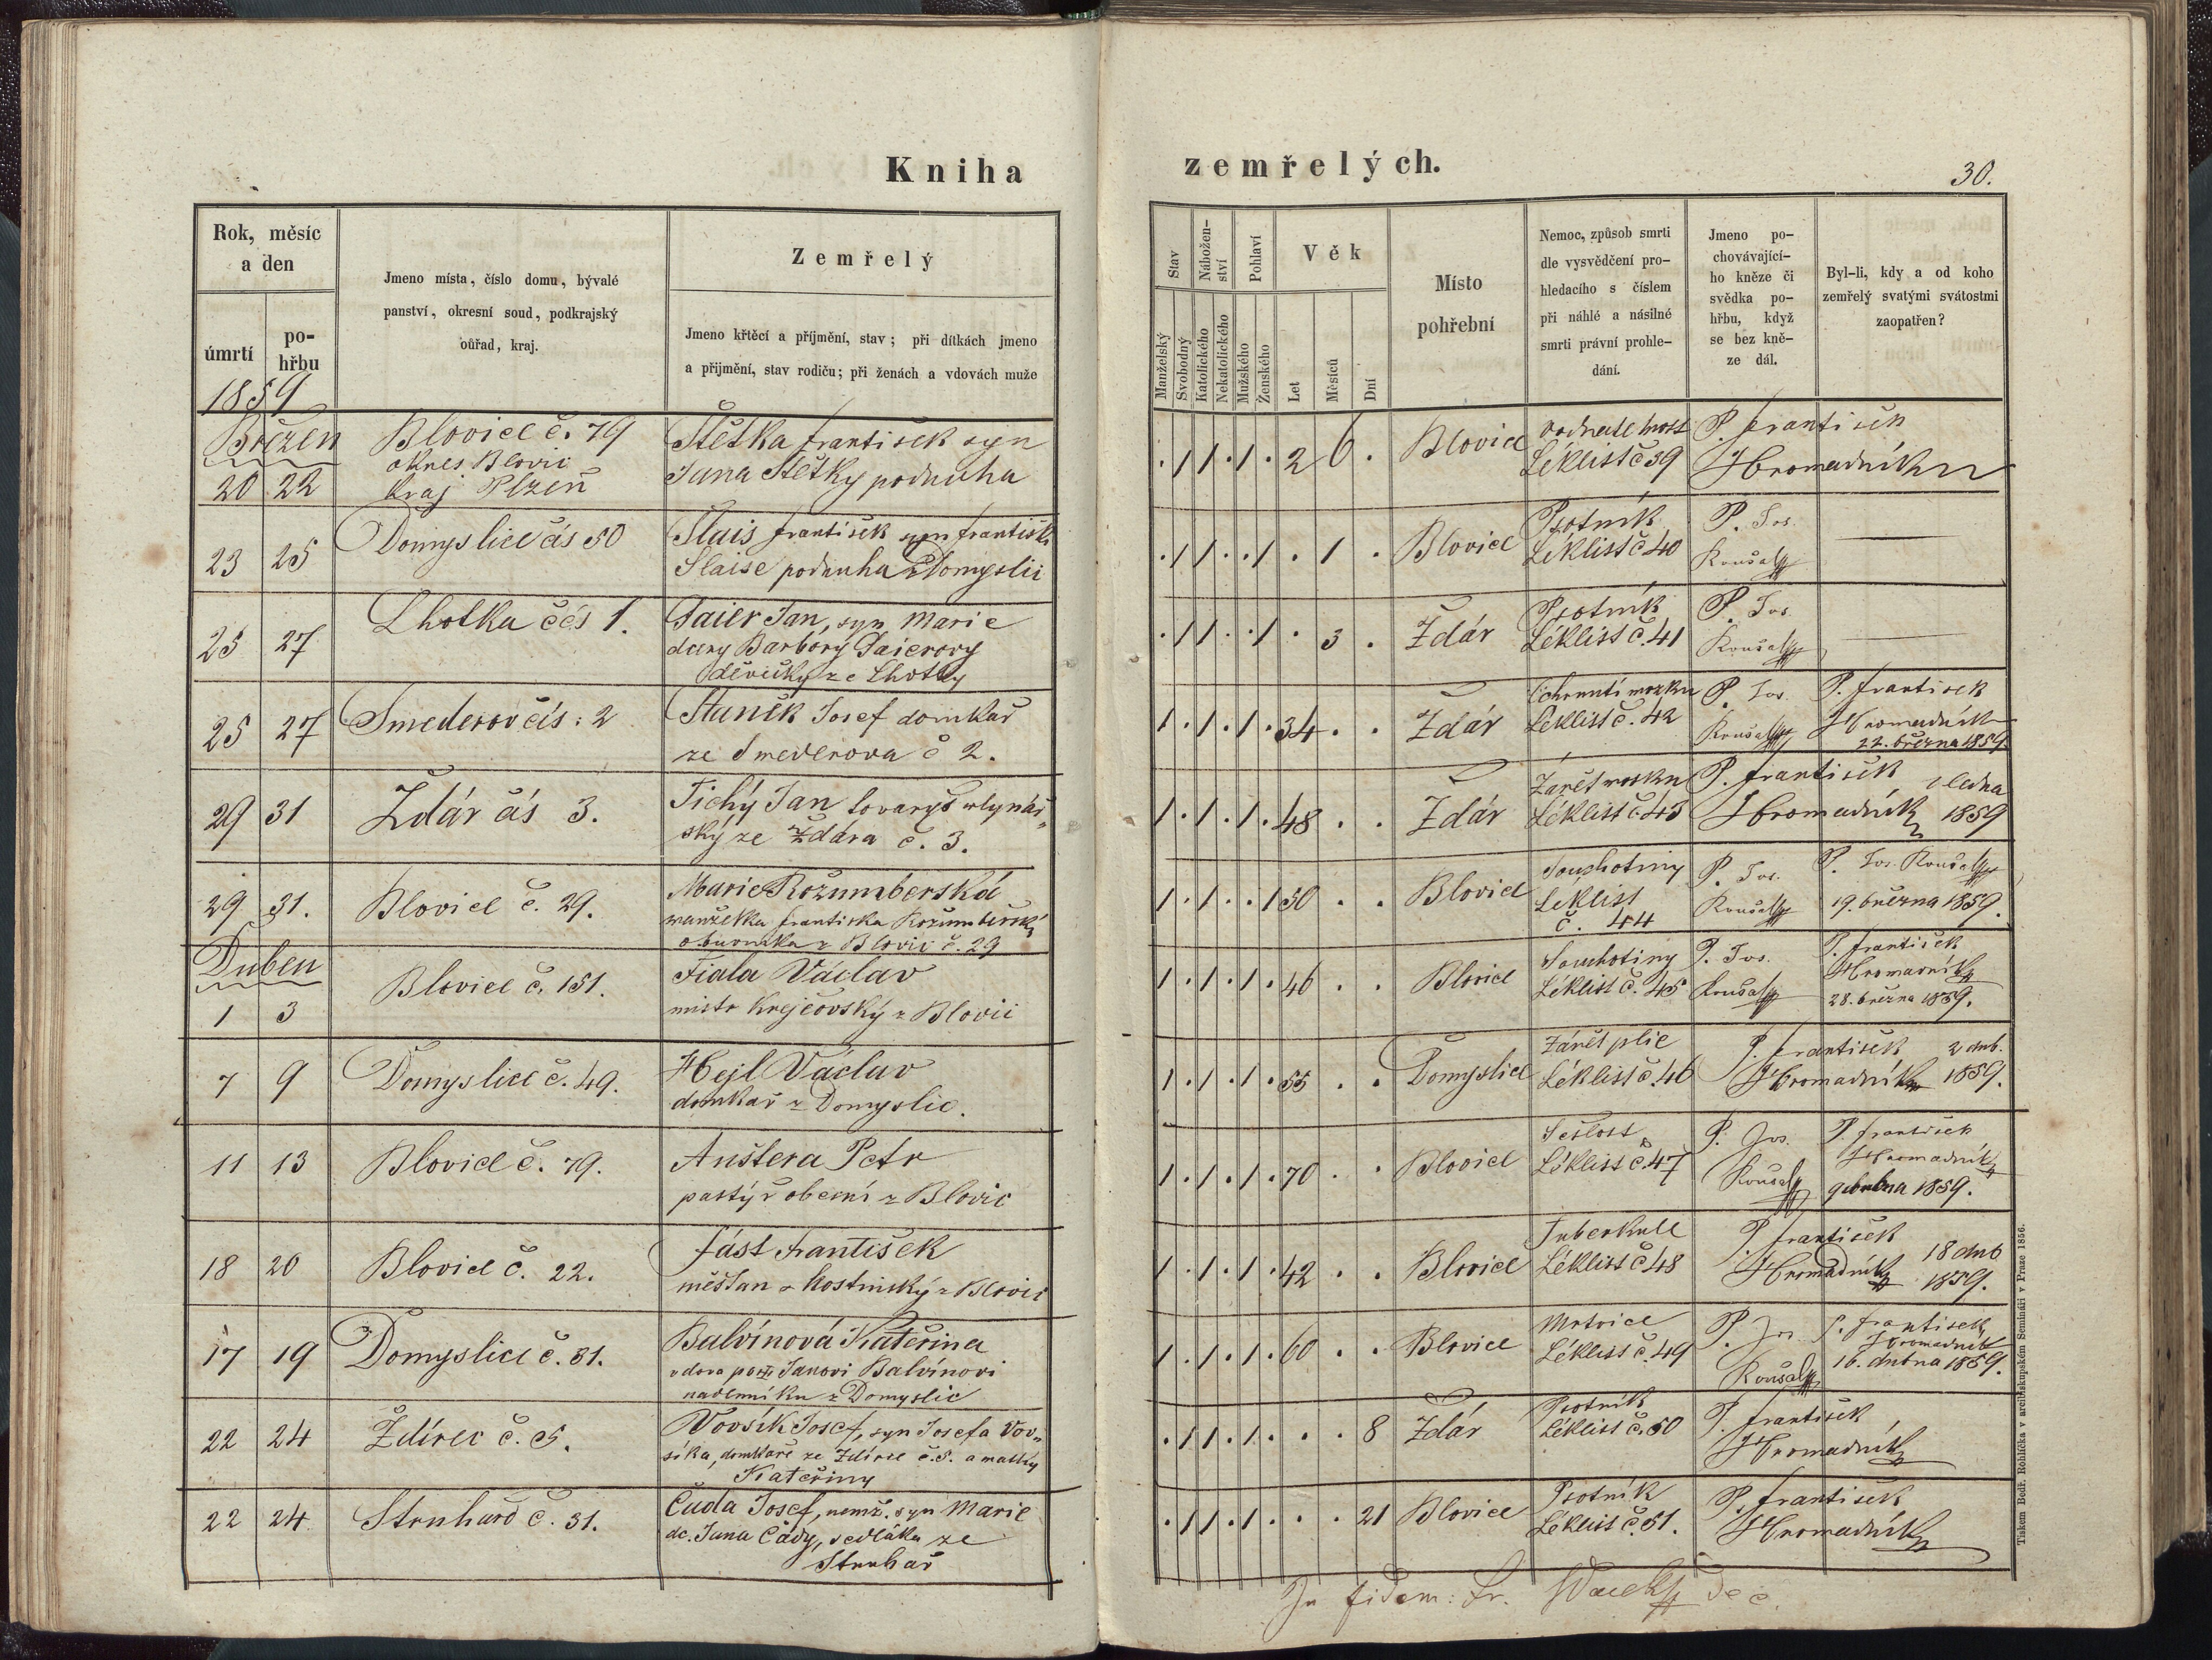 Kniha
Rok, měsíc
a den
úmrtí
po-
hřbu
1859
Jmeno místa, číslo domu, bývalé
panství, okresní soud, podkrajský
ouřad, kraj.
Zemřelý
Jmeno křtěcí a příjmění, stav; při dítkách jmeno
a přijmění, stav rodiču; při ženách a vdovách muže
Březen
20 22
Blovice č. 79
okres Blovic
kraj Plzeň
Štětka František syn
Jana Štětky podruha
23 25
Domyslice čís 50
Slais František syn Františk.
Slaise podruha z Domyslic
25 27
Lhotka čís 1.
Jan, syn Marie
dcery Barbory
děvečky ze Lhotky
25 27
Smederov čís: 2
Staněk Josef domkař
ze Smederova č 2.
29 31
Ždár čís 3.
Tichý Jan tovaryš mlynář„
ský ze Ždára č. 3.
29 31.
Blovice č. 29.
Marie Rožumberská
manželka Františka
z Blovic č. 29
Duben
1 3
Blovice č. 151.
Fiala Václav
mistr krejčovský z Blovic
7 9
Domyslice č. 49.
Hejl Václav
domkař z Domyslic.
11 13
Blovice č. 79.
Auštera Petr
pastýř obecní z Blovic
18 20
Blovice č. 22.
Fást František
měšťan a hostinský z Blovic
17 19
Domyslice č. 31.
Balvínová Kateřina
vdova po Janovi Balvínovi
nadenníku z Domyslic
22 24
Ždírec č. 5.
Vovsík Josef, syn Josefa Vov„
síka, domkaře ze Ždírce č. 5. a matky
Kateřiny
22 24
Struhař č. 31.
Čuda Josef, nemž. syn Marie
dc. Jana Čudy, sedláka ze
Struhař
zemřelých.
30.
Stav
Nábožen-
ství
Pohlaví
Věk
Manželský
Svobodný
Katolického
Nekatolického
Mužského
Ženského
Let
Měsíců
Dní
Místo
pohřební
Nemoc, způsob smrti
dle vysvědčení pro-
hledacího s číslem
při náhlé a násilné
smrti právní prohle-
dání.
Jmeno po-
chovávající-
ho kněze či
svědka po-
hřbu, když
se bez kně-
ze dál.
Byl-li, kdy a od koho
zemřelý svatými svátostmi
zaopatřen?
. 1 1 . 1 . 2 6 . Blovice
Léklist č 39
P. František
Hromadník
. 1 1 . . 1 . 1 . Blovice
Psotník
Léklist č 40
P. Jos.
Koušal
. 1 1 . . 1 . 3 . Ždár
Psotník
Léklist č. 41
P. Jos.
Koušal
1 . 1 . 1 . 34 . . Ždár
Ochrnutí mozku
Léklist č. 42
P. Jos.
Koušal
P. František
Hromadník
22. března 1859
1 . 1 . 1 . 48 . . Ždár
Zánět mozku
Léklist č. 43
P. František
Hromadník
ledna
1859
1 . 1 . . 1 50 . . Blovice
Souchotiny
Leklist
č. 44
P. Jos.
Koušal
P. Jos. Koušal
19. března 1859.
1 . 1 . 1 . 46 . . Blovice
Souchotiny
Léklist č. 45
P. Jos.
Koušal
P. František
Hromadník
28. března 1859.
1 . 1 . 1 . 55 . . Domyslice
Zánět plic
Léklist č. 46
P. František
Hromadník
2 dub.
1859.
1 . 1 . 1 . 70 . . Blovice
Sešlost
Léklist č. 47
P. Jos.
Koušal
P. František
Hromadník
9 dubna 1859.
1 . 1 . 1 . 42 . . Blovice
Tuberkule
Léklist č 48
P. František
Hromadník
18 dub
1859.
1 . 1 . 1 . 60 . . Blovice
Mrtvice
Léklist č. 49
P. Jos.
Koušal
P. František
Hromadník
16. dubna 1859.
. 1 1 . 1 . . . 8 Ždár
Psotník
Léklist č. 50
P. František
Hromadník
. 1 1 . 1 . . . 21 Blovice
Psotník
Léklist č. 51.
P. František
Hromadník
In fidem: Fr.
Tiskem Bedř. Rohlíčka v arcibiskupském Semináři v Praze 1856.